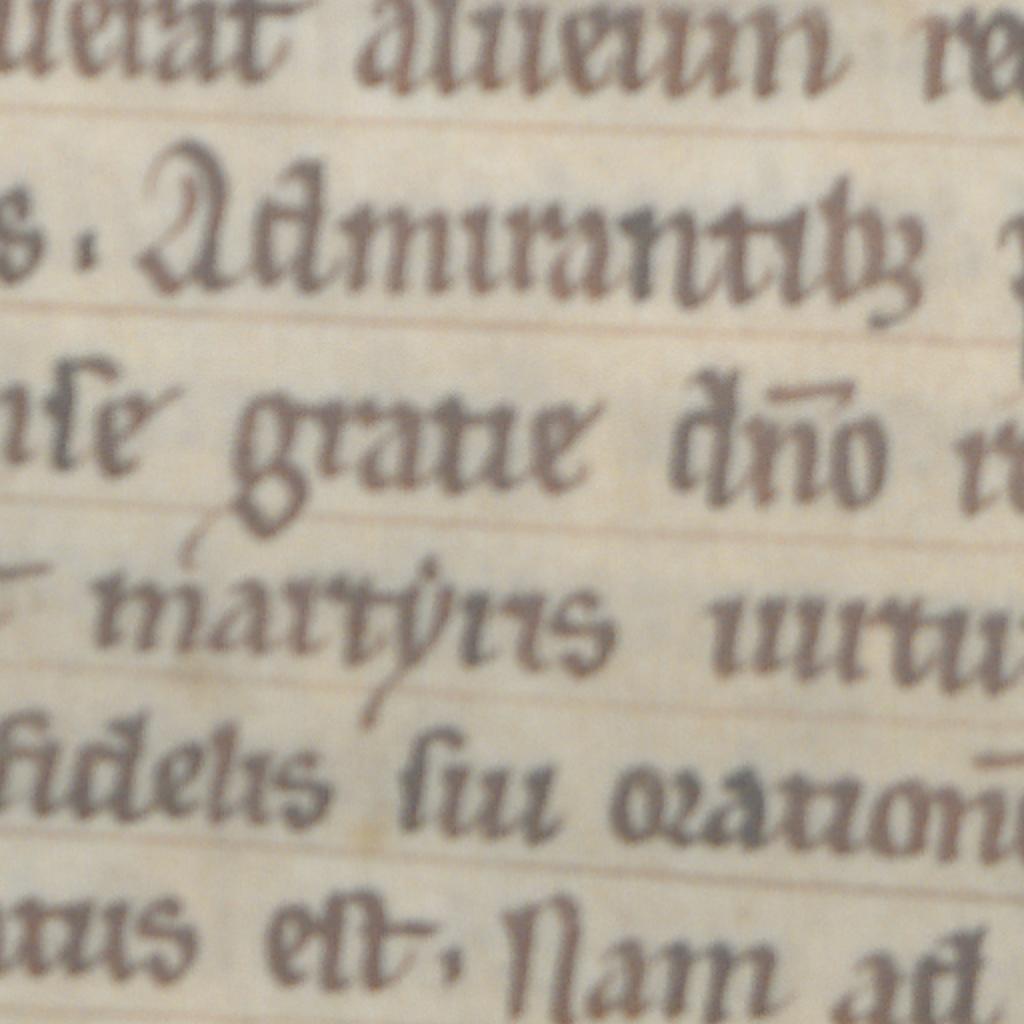 uerat alueum re
s. Admirantibꝫ
nse gratie dn̄o re
martẏris uirtu
fidelis sui oration̄
atus est. Nam ad